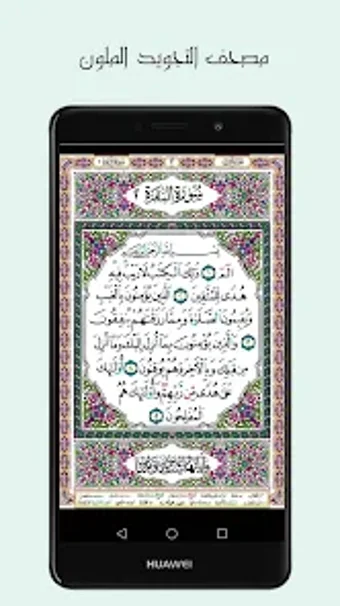 مصحف التجويد الملون
سُورَةُ البَقَرَةِ ٢
بِسْمِ اللَّهِ الرَّحْمَٰنِ الرَّحِيمِ
الٓمٓ ١ ذَٰلِكَ ٱلْكِتَٰبُ لَا رَيْبَ فِيهِ
هُدًى لِّلْمُتَّقِينَ ٢ ٱلَّذِينَ يُؤْمِنُونَ بِٱلْغَيْبِ
وَيُقِيمُونَ ٱلصَّلَوٰةَ وَمِمَّا رَزَقْنَٰهُمْ يُنفِقُونَ
٣ وَٱلَّذِينَ يُؤْمِنُونَ بِمَآ أُنزِلَ إِلَيْكَ وَمَآ أُنزِلَ
مِن قَبْلِكَ وَبِٱلْءَاخِرَةِ هُمْ يُوقِنُونَ ٤ أُو۟لَٰٓئِكَ
عَلَىٰ هُدًى مِّن رَّبِّهِمْ وَأُو۟لَٰٓئِكَ هُمُ
ٱلْمُفْلِحُونَ ٥
HUAWEI